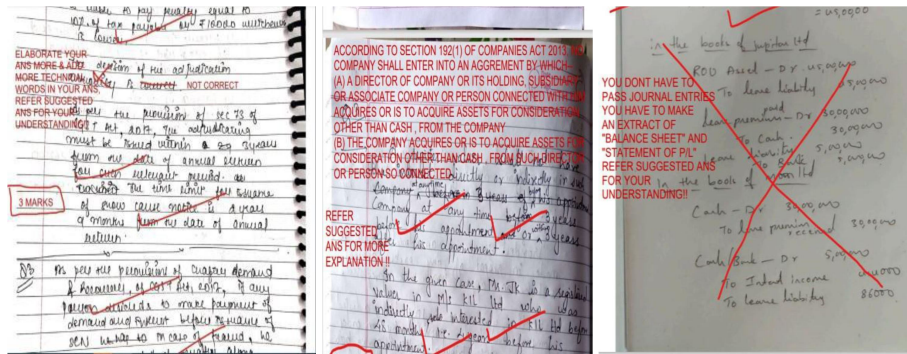 liable to pay penalty equal to
10% of tax payable or ₹10000 whichever
is lower.
The decision of the adjudication
authority is correct NOT CORRECT
ELABORATE YOUR
ANS MORE & ADD
MORE TECHNICAL
WORDS IN YOUR ANS,
REFER SUGGESTED
ANS FOR YOUR
UNDERSTANDING!!
As per the provision of sec 73 of
Act, 2017, The adjudicating
must be issued within 2 yrs
from the date of annual return
for such relevant period.
The time limit for issuance
of show cause notice is 2 years
9 months from the date of annual
return.
3 MARKS
As per the provisions of demand
& Recoveries of CGST Act, 2017, if any
person decides to make payment of
demand and interest before issuance of
SCN in case of fraud, he
ACCORDING TO SECTION 192(1) OF COMPANIES ACT 2013, NO
COMPANY SHALL ENTER INTO AN AGGREMENT BY WHICH-
(A) A DIRECTOR OF COMPANY OR ITS HOLDING, SUBSIDIARY
OR ASSOCIATE COMPANY OR PERSON CONNECTED WITH HIM
ACQUIRES OR IS TO ACQUIRE ASSETS FOR CONSIDERATION
OTHER THAN CASH , FROM THE COMPANY
(B) THE COMPANY ACQUIRES OR IS TO ACQUIRE ASSETS FOR
CONSIDERATION OTHER THAN CASH , FROM SUCH DIRECTOR
OR PERSON SO CONNECTED.
directly or indirectly in
Company
Company at any time before 3 years
before his appointment and or 3 years
after his appointment.
REFER
SUGGESTED
ANS FOR MORE
EXPLANATION !!
In the given case, Mr. JK is a registered
valuer in M/s RIL Ltd who was
indirectly interested in RIL Ltd before
48 months i.e. 4 years before his
appointment.
= 45,00,000
in the books of Jupiter ltd
ROU Asset - Dr 45,00,000
To lease liability 45,00,000
Lease premium paid - Dr 30,00,000
To Cash 30,00,000
Lease liability 5,00,000
To Bank 5,00,000
In the books of
Cash - Dr 30,00,000
To lease premium received 30,00,000
Cash/Bank - Dr 5,00,000
To Intend income
To lease liability 86000
YOU DONT HAVE TO
PASS JOURNAL ENTRIES
YOU HAVE TO MAKE
AN EXTRACT OF
"BALANCE SHEET" AND
"STATEMENT OF P/L"
REFER SUGGESTED ANS
FOR YOUR
UNDERSTANDING!!